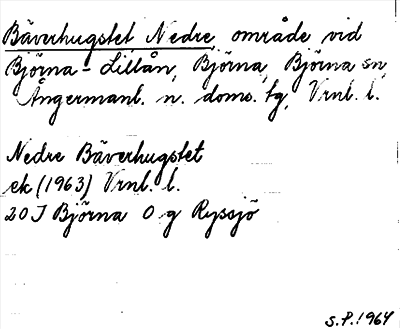 Bäverhugstet Nedre, område vid
Björna-Lillån, Björna, Björna sn,
Ångermanl. n. doms. tg, Vrnl. l.
Nedre Bäverhugstet
ek (1963) Vrnl. l.
20 J Björna O g Ryssjö
S.P. 1964